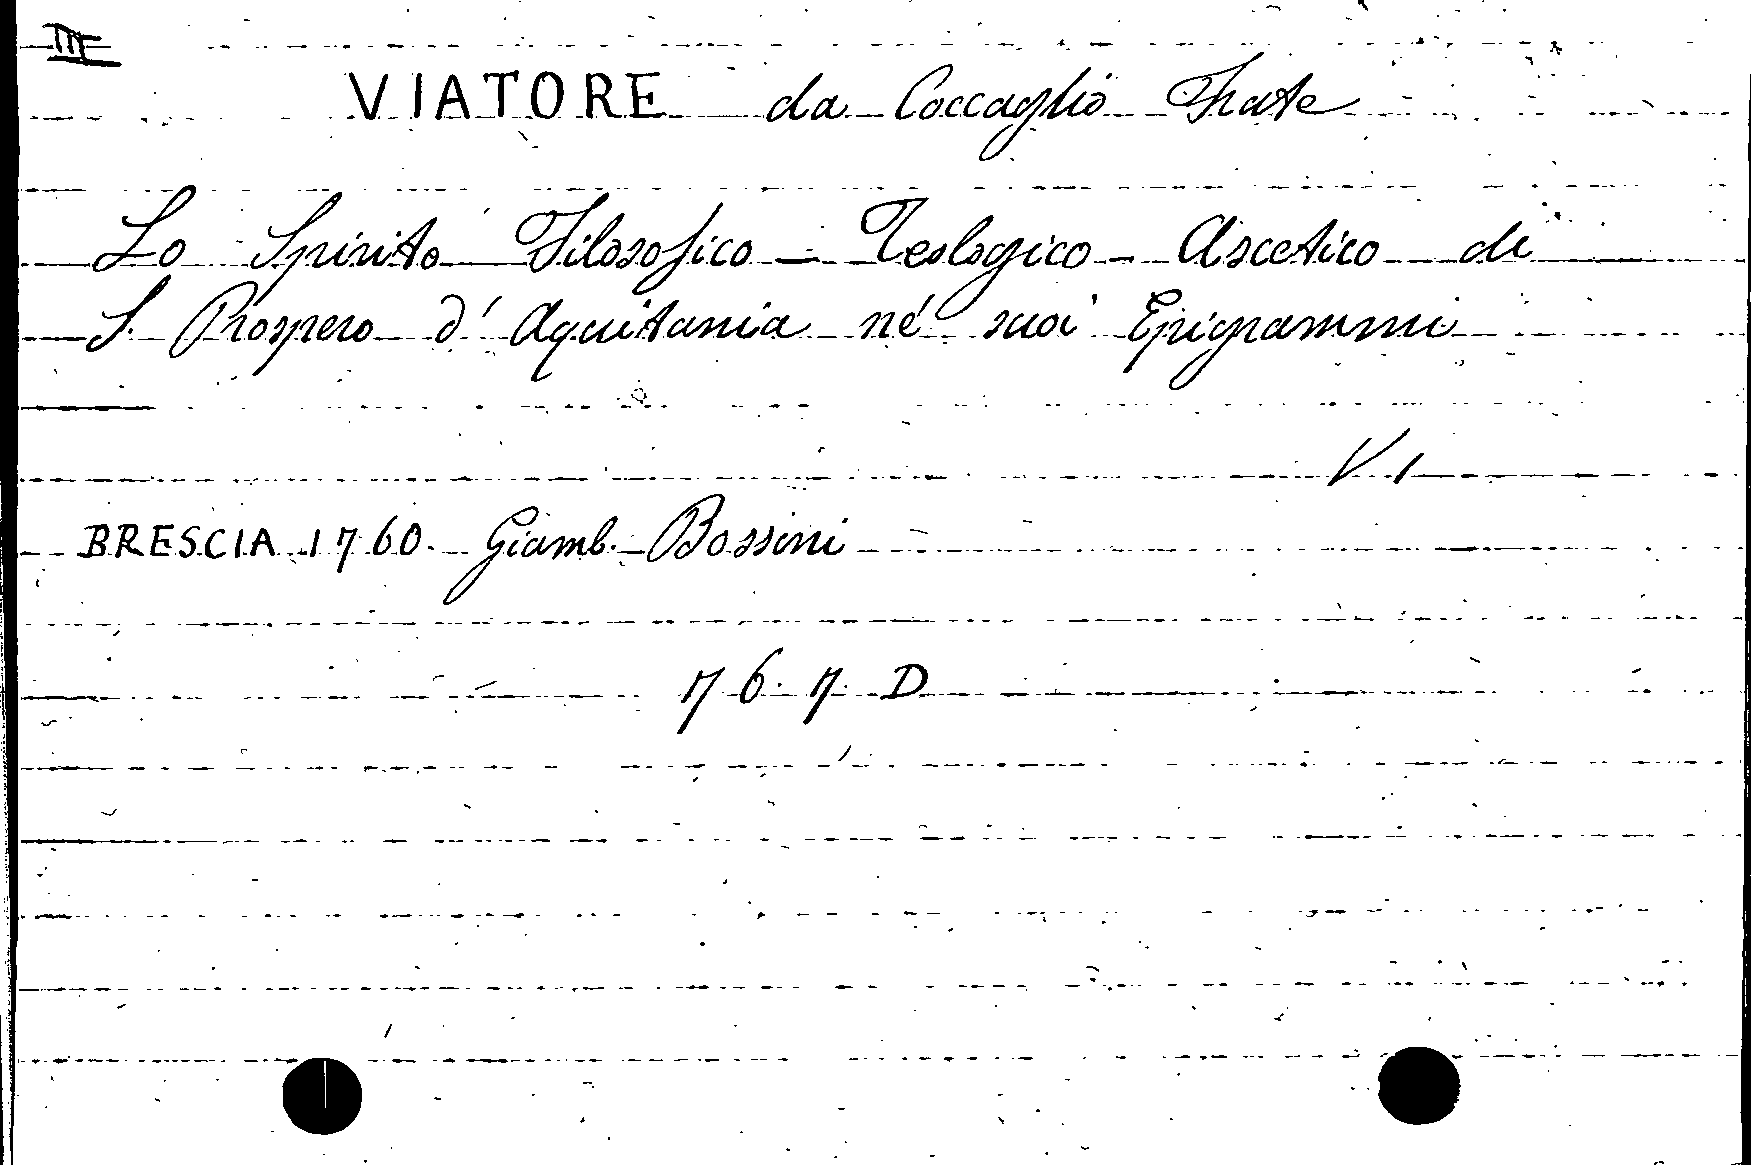 III
VIATORE da Coccaglio Frate
Lo Spirito Filosofico - Teologico - Ascetico di
S. Prospero d' Aquitania né suoi Epigrammi
V 1
BRESCIA 1760. Giamb. Bossini
76. 7. D